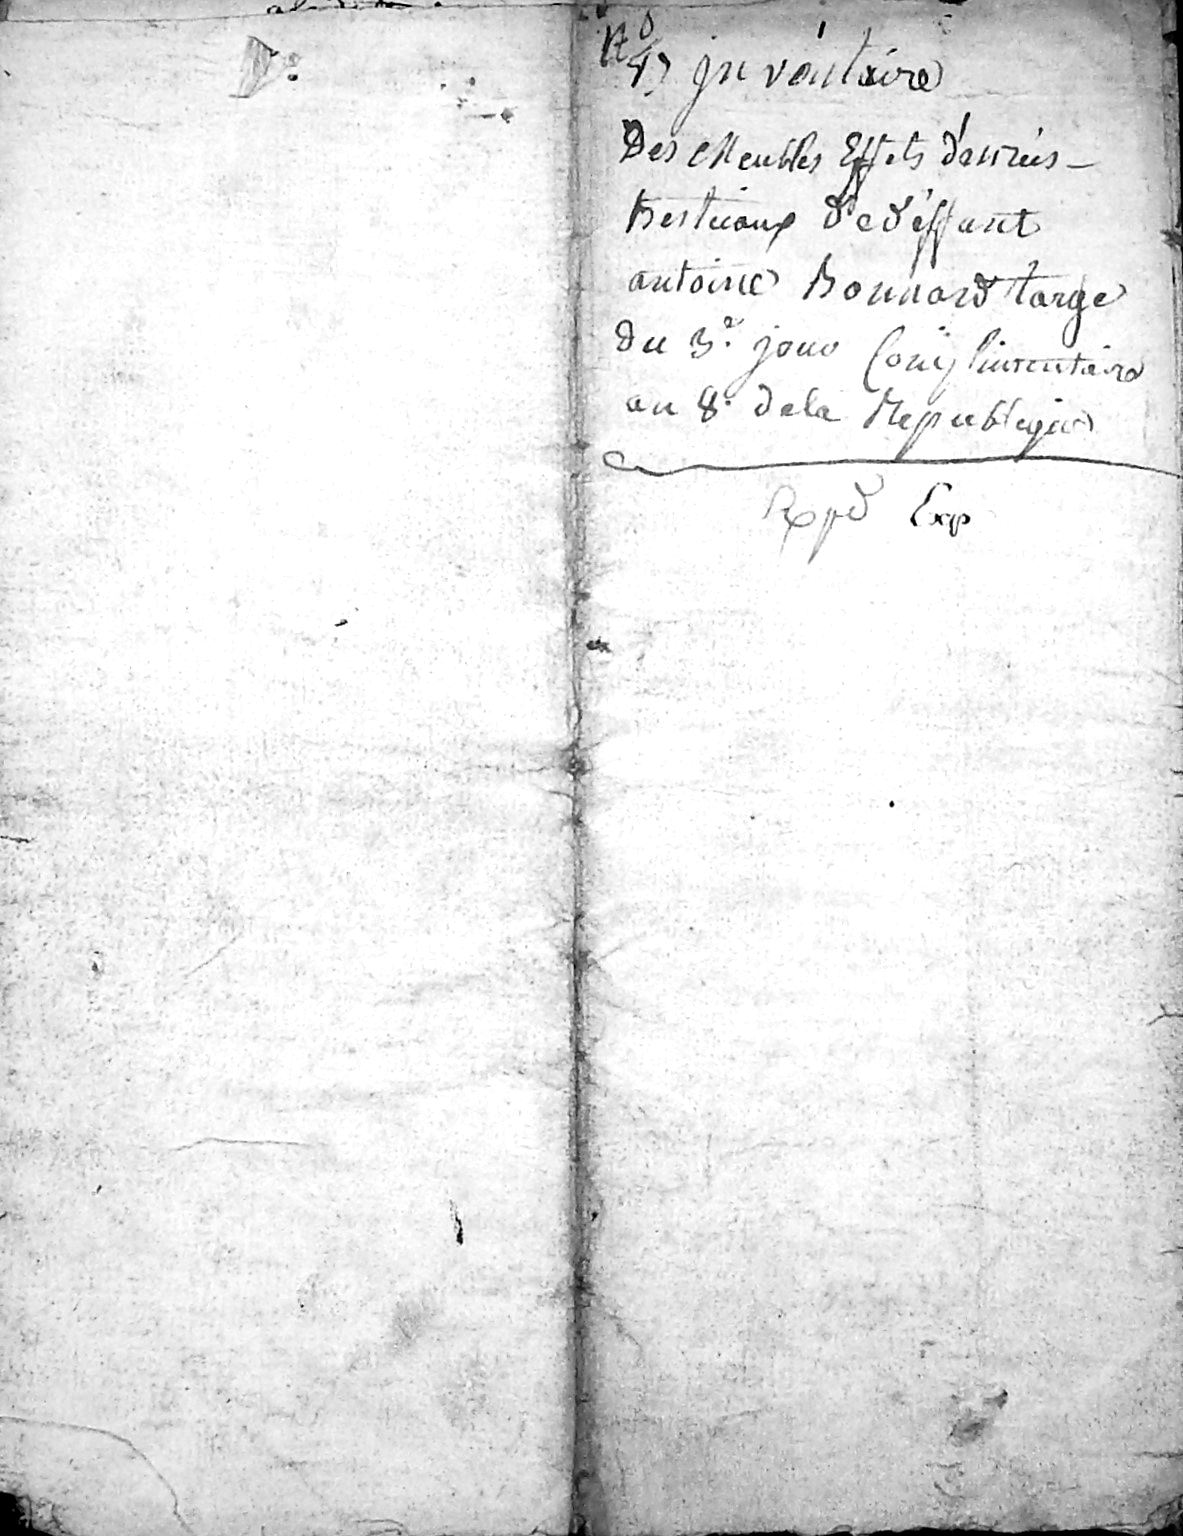 inventaire
Des Meubles Effets denreés -
Bestieaux de deffunt
antoine Bonnard targe
Du 3.e jour Complimentaire
an 8.e dela Republique
Exp